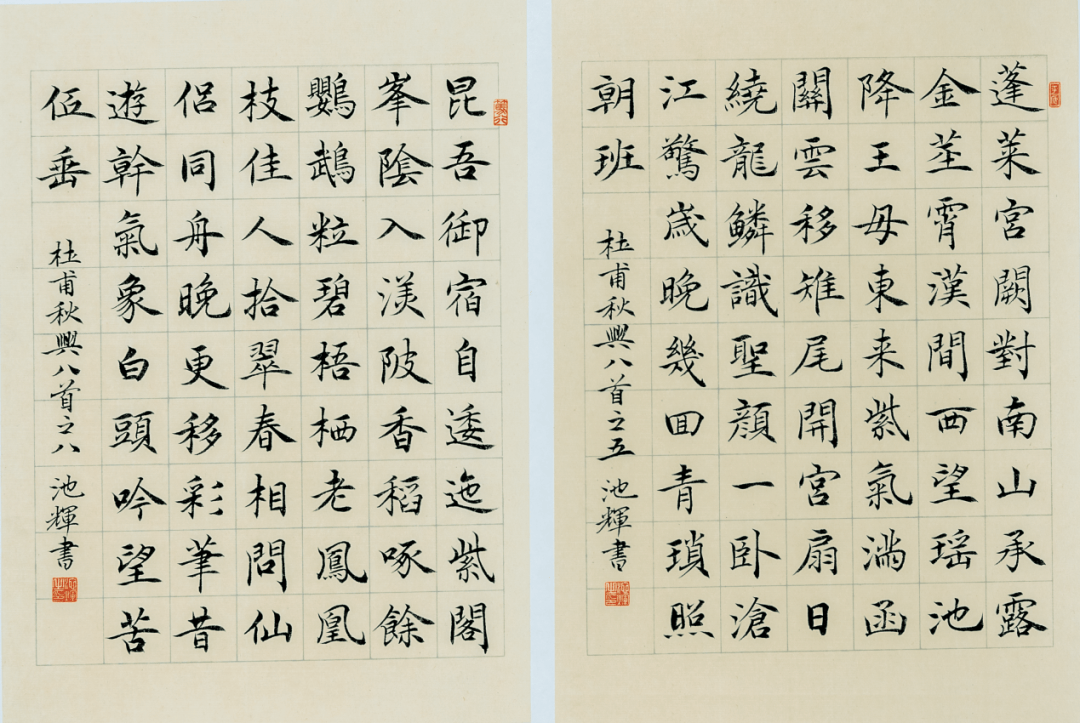 蓬萊宮闕對南山承露
金莖霄漢間西望瑤池
降王母東来紫氣滿函
關雲移雉尾開宮扇日
繞龍鱗識聖顏一卧滄
江驚歲晚幾回青瑣照
朝班
杜甫秋興八首之五 池輝書
昆吾御宿自逶迤紫閣
峯陰入渼陂香稻啄餘
鸚鵡粒碧梧栖老鳳凰
枝佳人拾翠春相問仙
侶同舟晚更移彩筆昔
遊幹氣象白頭吟望苦
低垂
杜甫秋興八首之八 池輝書